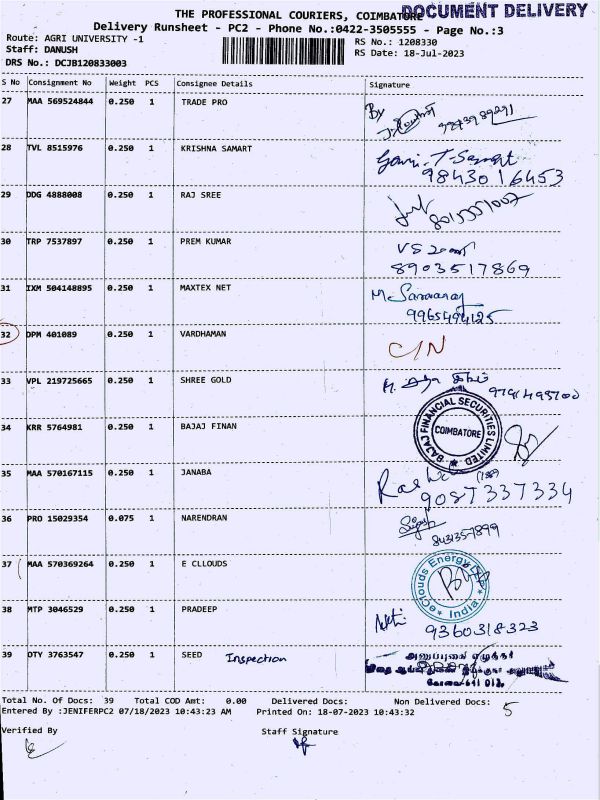 DOCUMENT DELIVERY
THE PROFESSIONAL COURIERS, COIMBATORE
Delivery Runsheet - PC2 - Phone No.:0422-3505555 - Page No.:3
Route: AGRI UNIVERSITY -1
RS No.: 1208330
Staff: DANUSH
RS Date: 18-Jul-2023
DRS No.: DCJB120833003
S No Consignment No Weight PCS Consignee Details Signature
27 MAA 569524844 0.250 1 TRADE PRO By
28 TVL 8515976 0.250 1 KRISHNA SAMART Gowri. T-Samart
98430 16453
29 DDG 4888008 0.250 1 RAJ SREE
8015551007
30 TRP 7537897 0.250 1 PREM KUMAR
8903517869
31 IXM 504148895 0.250 1 MAXTEX NET M. Saravanan
9965494125
32 DPM 401089 0.250 1 VARDHAMAN C/N
33 VPL 219725665 0.250 1 SHREE GOLD
34 KRR 5764981 0.250 1 BAJAJ FINAN BAJAJ FINANCIAL SECURITIES LIMITED
COIMBATORE
35 MAA 570167115 0.250 1 JANABA
9087337334
36 PRO 15029354 0.075 1 NARENDRAN
37 MAA 570369264 0.250 1 E CLLOUDS eClouds Energy
India
38 MTP 3046529 0.250 1 PRADEEP
9360318323
39 OTY 3763547 0.250 1 SEED Inspection
Total No. Of Docs: 39 Total COD Amt: 0.00 Delivered Docs: Non Delivered Docs: 5
Entered By :JENIFERPC2 07/18/2023 10:43:23 AM Printed On: 18-07-2023 10:43:32
Verified By Staff Signature